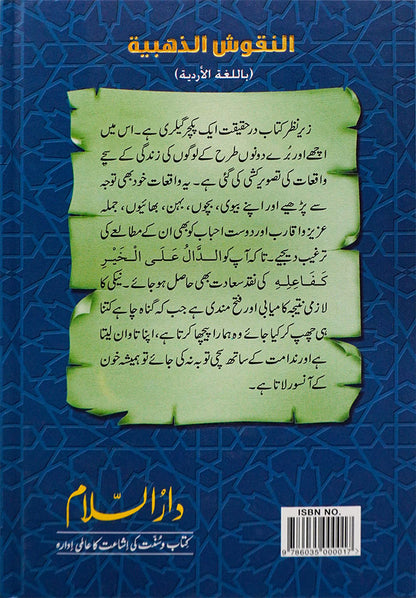 النقوش الذهبية
(باللغة الأردية)
زیر نظر کتاب در حقیقت ایک پکچر گیلری ہے۔ اس میں
اچھے اور بُرے دونوں طرح کے لوگوں کی زندگی کے سچے
واقعات کی تصویر کشی کی گئی ہے۔ یہ واقعات خود بھی توجہ
سے پڑھیے اور اپنے بیوی، بچوں، بہن، بھائیوں، جملہ
عزیز و اقارب اور دوست احباب کو بھی ان کے مطالعے کی
ترغیب دیجیے۔ تاکہ آپ کو الدَّالُ عَلَى الْخَيْرِ
كَفَاعِلِهِ کی نقد سعادت بھی حاصل ہو جائے۔ نیکی کا
لازمی نتیجہ کامیابی اور فتح مندی ہے جب کہ گناہ چاہے کتنا
ہی چھپ کر کیا جائے وہ ہمارا پیچھا کرتا ہے، اپنا تاوان لیتا
ہے اور ندامت کے ساتھ سچی توبہ نہ کی جائے تو ہمیشہ خون
کے آنسو رلاتا ہے۔
دارُالسّلام
کتاب و سنّت کی اشاعت کا عالمی ادارہ
ISBN NO.
9 786035 000017